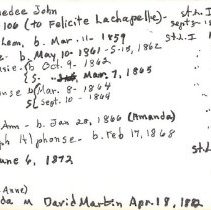 edee John
106 (to Felicite Lachapelle)- St. L. I
Leon, b. Mar. 11- 1859 Sept 5-1
b. May 10-1861-5-15, 1862
sie- b Oct. 9- 1862 St. L I
S- Mar. 7, 1865
b Mar. 8- 1864
S Sept. 10 - 1864
Ann - b. Jan 28, 1866 (Amanda)
ph Alphonse - b. Feb 17, 1868
St.
une 6, 1872
Anne)
da m David Martin Apr. 18, 18